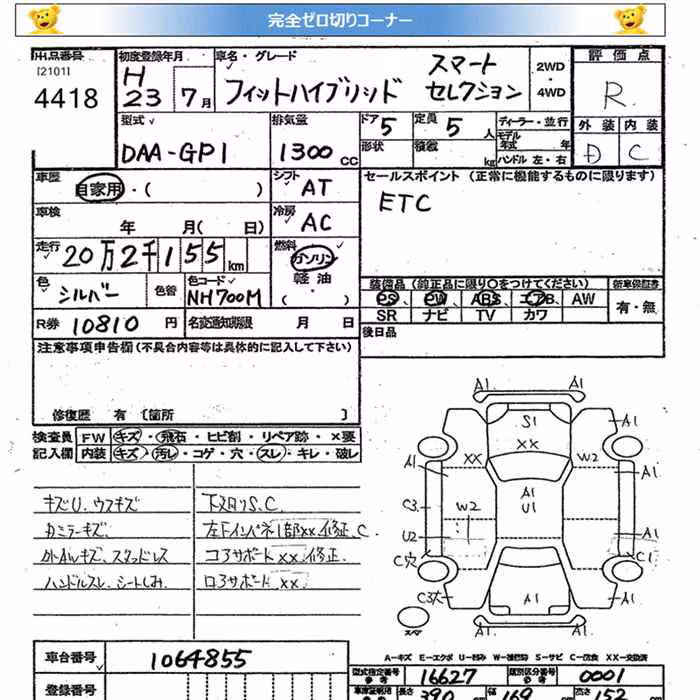 完全ゼロ切りコーナー
出品番号 初度登録年月 車名・グレード 評価点
[2101] 4418 H23 7月 フィットハイブリッド スマートセレクション 2WD・4WD R
型式 排気量 ドア 5 定員 5人 ディーラー・並行 外装 内装
DAA-GP1 1300cc 形状 積載 kg モデル年式 年 D C
ハンドル 左・右
車歴 自家用・( ) シフト AT セールスポイント (正常に機能するものに限ります)
車検 年 月( 日) 冷房 AC ETC
走行 20万2千155km 燃料 ガソリン 軽油 ( )
色 シルバー 色替 色コード NH700M 装備品 (純正品に限り○をつけてください) 新車保証書
PS、PW、ABS エアB、AW 有・無
SR ナビ TV カワ
R券 10810円 名変通知期限 月 日 後日品
注意事項申告欄(不具合内容等は具体的に記入して下さい)
修復歴 有 [箇所 ]
検査員 FW キズ・飛石・ヒビ割・リペア跡・×要
記入欄 内装 キズ・汚レ・コゲ・穴・スレ・キレ・破レ
キズU、ウスキズ 下又リS.C
カミラーキズ、 左下インパネ1部xx、修正、C
外AWキズ、スタッドレス コアサポートxx、修正
ハンドルスレ、シートしみ、 ロアサポートxx
A1 A1
S1 A1
XX
XX W2
A1 A1
A1
U1
C3 W2
U2 A1
C穴 C1
C3穴 A1 A1
A1 A1
スペア
A-キズ E-エクボ U-凹み W-補修跡 S-サビ C-腐食 XX-交換済
車台番号 1064855 型式指定番号 参考 16627 類別区分番号 参考 0001
登録番号 長さ 390cm 幅 169cm 高さ 152cm